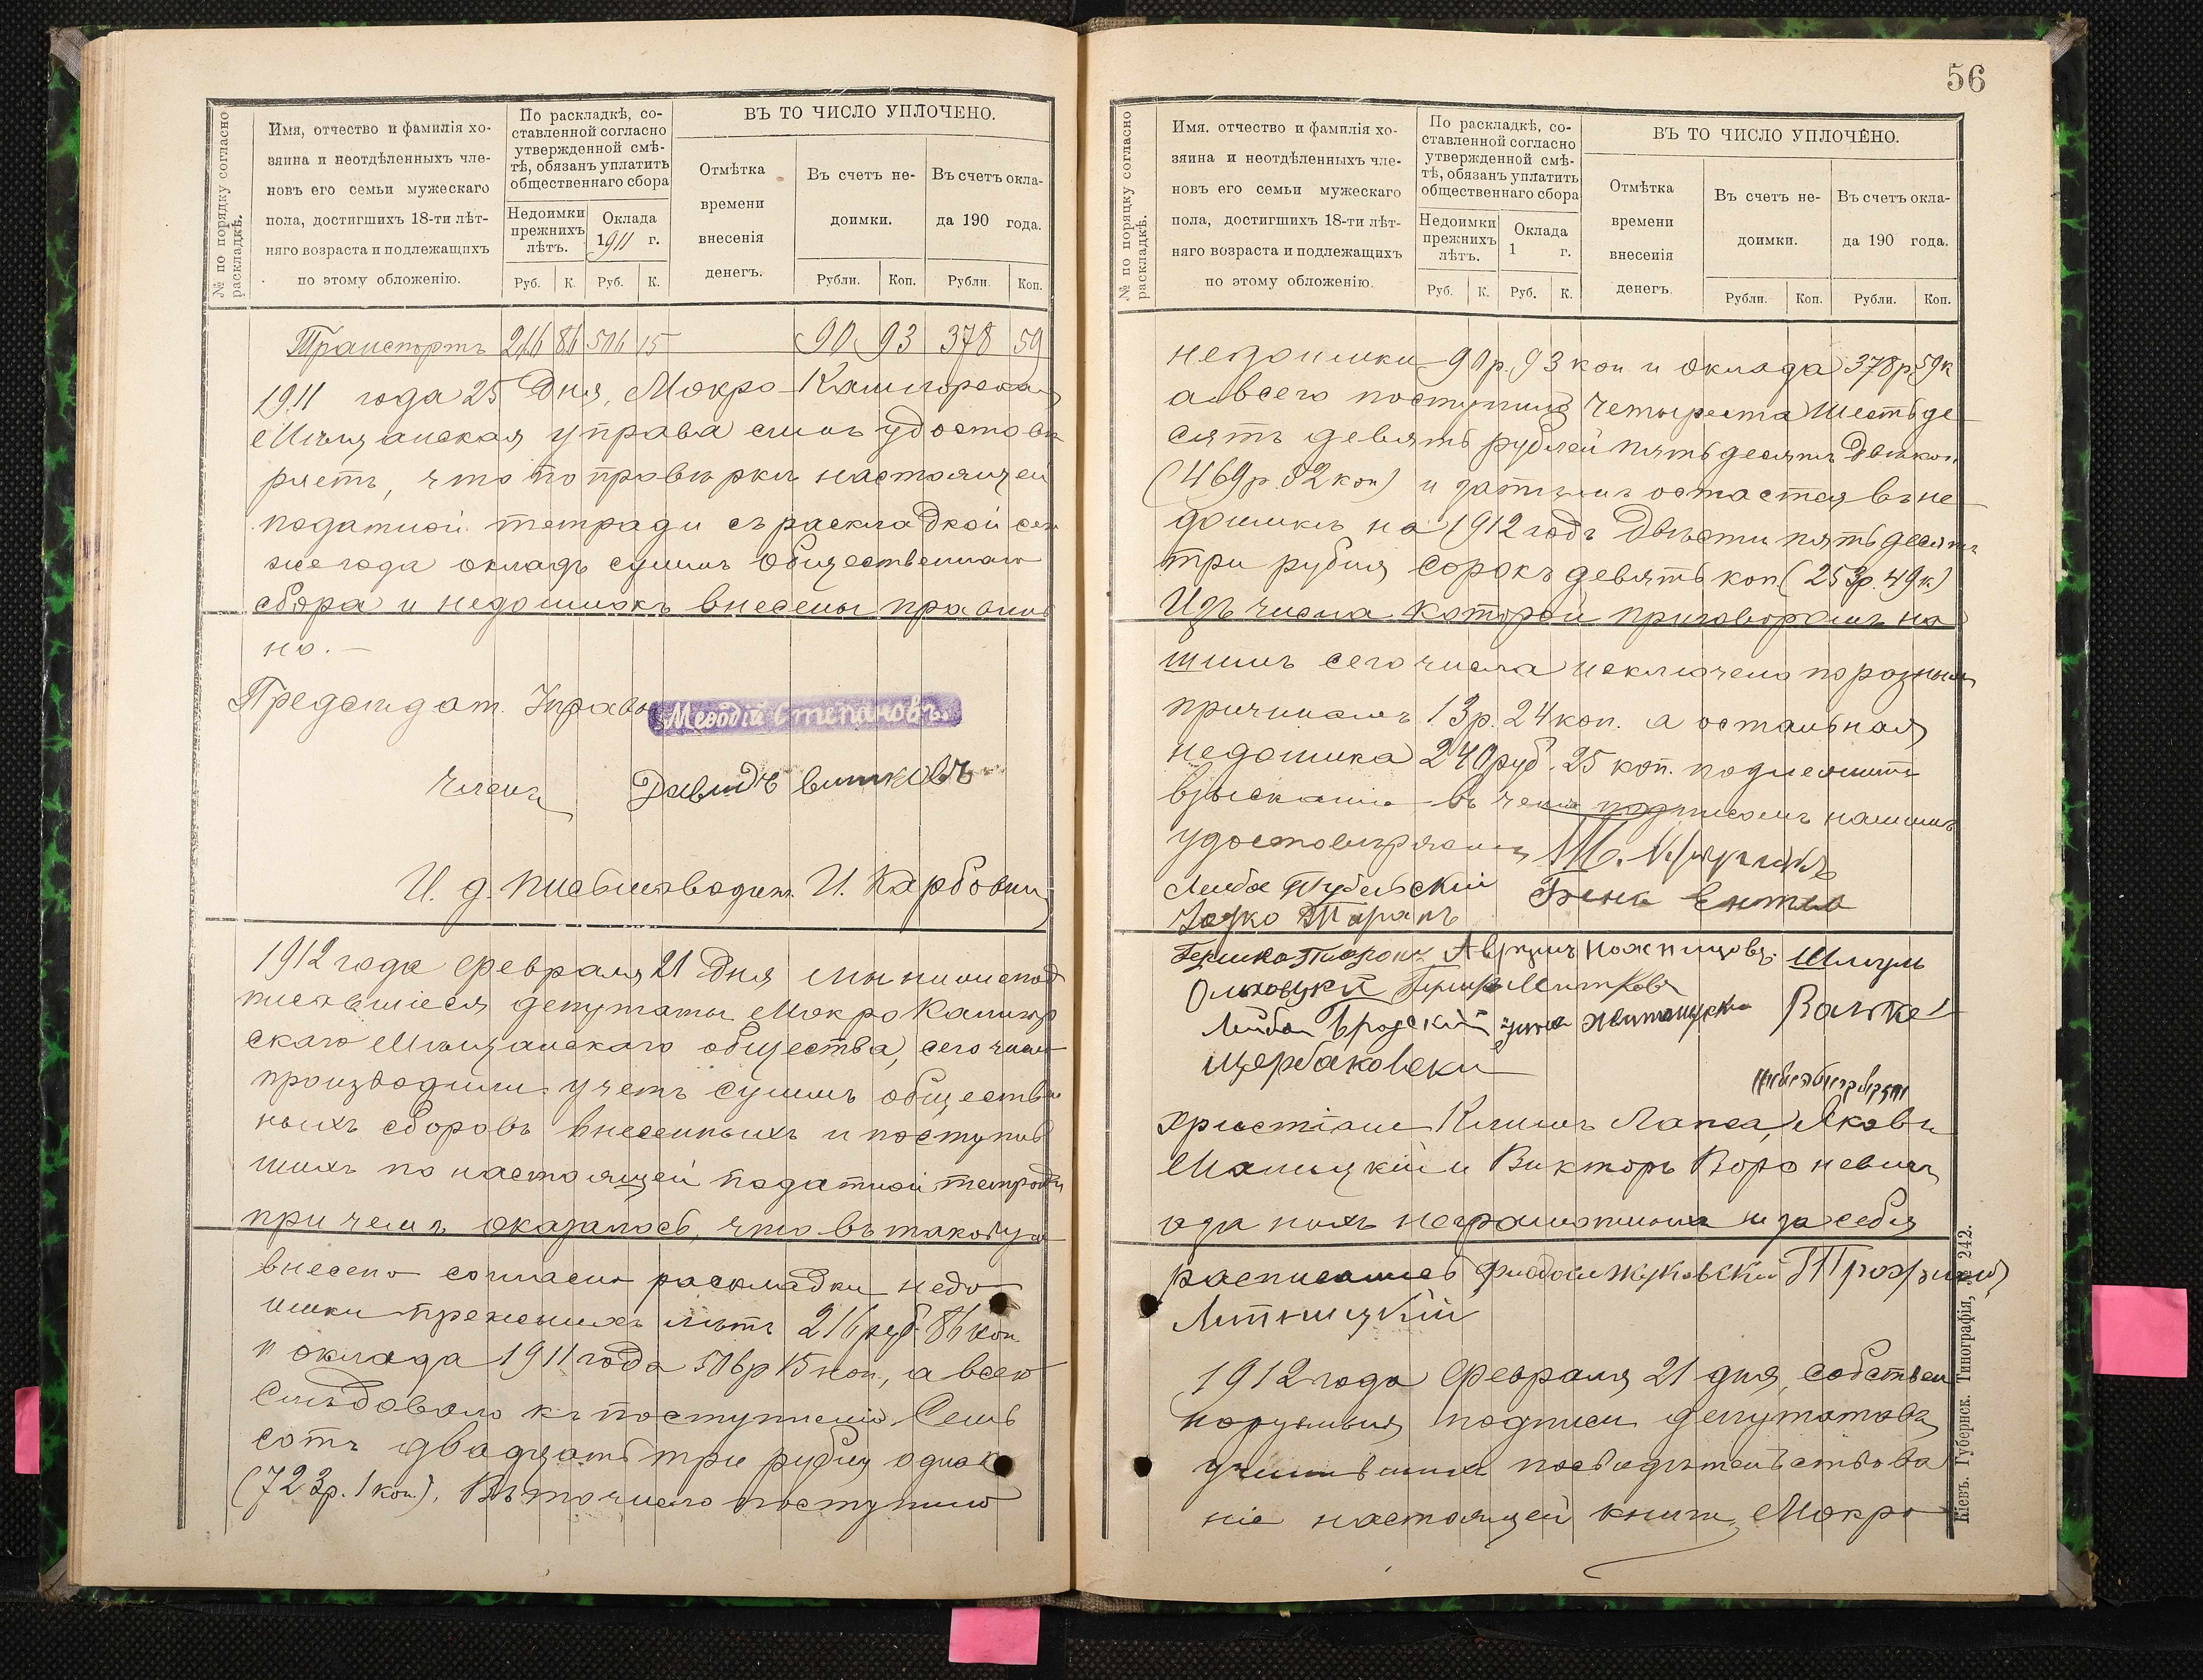 № по порядку согласно раскладкѣ.
Имя, отчество и фамилія хо-
зяина и неотдѣленныхъ чле-
новъ его семьи мужескаго
пола, достигшихъ 18-ти лѣт-
няго возраста и подлежащихъ
по этому обложенію.
По раскладкѣ, со-
ставленной согласно
утвержденной смѣ-
тѣ, обязанъ уплатить
общественнаго сбора
Недоимки
прежнихъ
лѣтъ.
Оклада
1911 г.
Руб. К. Руб. К.
ВЪ ТО ЧИСЛО УПЛОЧЕНО.
Отмѣтка
времени
внесенія
денегъ.
Въ счетъ не-
доимки.
Въ счетъ окла-
да 190 года.
Рубли. Коп. Рубли. Коп.
Транспортъ 216 86 506 15 90 93 378 59
1911 года 25 Дня, Мокро-Калигорская
Мѣщанская управа симъ удостовѣ
ряетъ, что по провѣркѣ настоящей
податной тетради съ раскладкой сего
же года окладъ суммъ Общественнаго
сбора и недоимокъ внесены правиль
но.—
Председат. Управы Меѳодій Степановъ.
Членъ Давидъ
И. д. письмоводит. И. Карбовни
1912 года Февраля 21 Дня мы нижепод
писавшіеся депутаты Мокро Калигор
скаго Мѣщанскаго общества, сего числа
производили учетъ суммъ обществен
ныхъ сборовъ внесенныхъ и поступив
шихъ по настоящей податной тетради
при чемъ оказалось, что въ таковую
внесено согласно раскладки недо
имки прежнихъ лѣтъ 216 руб. 86 коп
и оклада 1911 года 506 р 15 коп, а всего
Слѣдовало къ поступленію Семь
сотъ двадцать три рубля одна к
(723р. 1 коп). Въ то число поступило
56
№ по порядку согласно раскладкѣ.
Имя. отчество и фамилія хо-
зяина и неотдѣленныхъ чле-
новъ его семьи мужескаго
пола, достигшихъ 18-ти лѣт-
няго возраста и подлежащихъ
по этому обложенію.
По раскладкѣ, со-
ставленной согласно
утвержденной смѣ-
тѣ, обязанъ уплатить
общественнаго сбора
Недоимки
прежнихъ
лѣтъ.
Оклада
1 г.
Руб. К. Руб. К.
ВЪ ТО ЧИСЛО УПЛОЧЕНО.
Отмѣтка
времени
внесенія
денегъ.
Въ счетъ не-
доимки.
Въ счетъ окла-
да 190 года.
Рубли. Коп. Рубли. Коп.
недоимки 90 р. 93 коп и оклада 378р 59к
а всего поступило Четыреста Шестьде
сятъ девять рублей пятьдесятъ две коп
(469р. 52 коп) и затѣмъ остается въ не
доимкѣ на 1912 годъ Двѣсти пятьдесятъ
три рубля сорокъ девять коп (253р. 49к)
Изъ числа которой приговоромъ на
шимъ сего числа исключено по разнымъ
причинамъ 13р. 24 коп. а остальная
недоимка 240 руб. 25 коп. подлежитъ
взысканію въ чемъ подписомъ нашимъ
удостовѣряемъ
Лейба
Таранъ
Шмуль
Лейба Бродскій
Щербаковски
христіане Климъ Лапса, Яковъ
Малицкій и Викторъ Вороневичъ
а за нихъ неграмотныхъ и за себя
расписались Жуковскій
1912 года Февраля 21 дня, собствен
норучныя подписи депутатовъ
учинившихъ посвидѣтельствова
ніе настоящей книги, Мокро
Кіевъ. Губернск. Типографія, № 242.